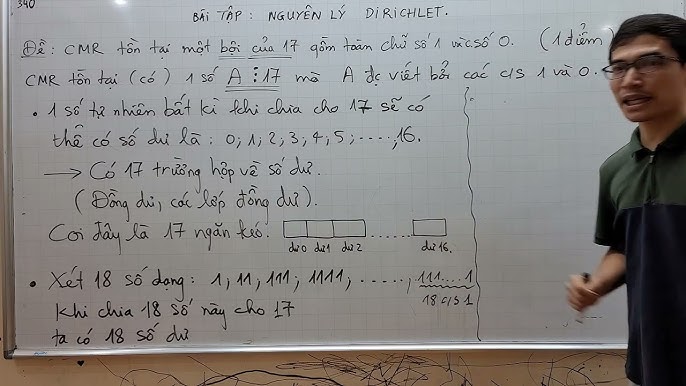 340
BÀI TẬP: NGUYÊN LÝ DIRICHLET.
Đề: CMR tồn tại một bội của 17 gồm toàn chữ số 1 và c.số 0. (1 điểm)
CMR tồn tại (có) 1 số A ⋮ 17 mà A đc viết bởi các c/s 1 và 0.
• 1 số tự nhiên bất kì khi chia cho 17 sẽ có
thể có số dư là: 0; 1; 2; 3; 4; 5; ....; 16.
→ Có 17 trường hợp về số dư.
(Đồng dư, các lớp đồng dư).
Coi đây là 17 ngăn kéo.
dư 0 dư 1 dư 2 ...... dư 16.
• Xét 18 số dạng: 1, 11, 111; 1111; ....., 111....1
18 c/s 1
Khi chia 18 số này cho 17
ta có 18 số dư